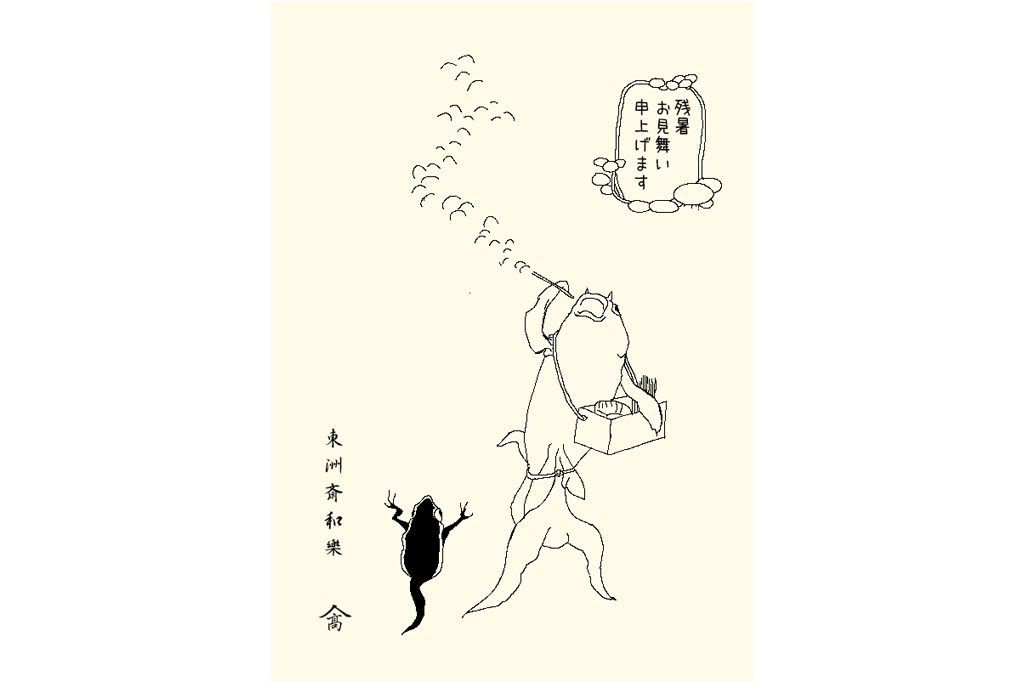 残暑
お見舞い
申上げます
東洲斎和樂
高